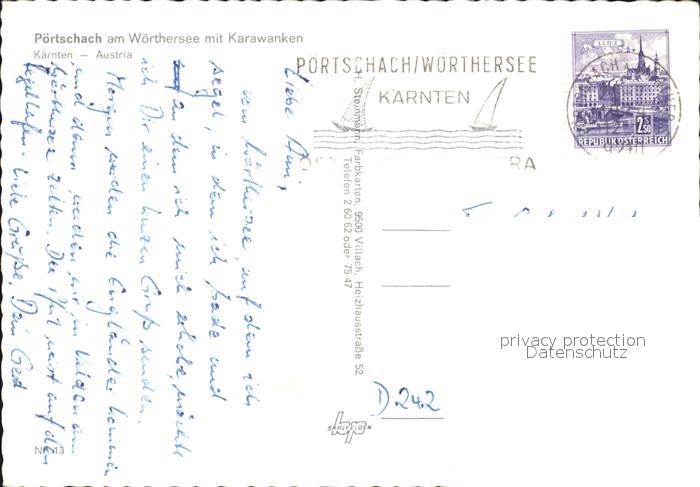 Pörtschach am Wörthersee mit Karawanken
Kärnten – Austria
PÖRTSCHACH/WÖRTHERSEE
KÄRNTEN
RA
LINZ
2.50
REPUBLIK ÖSTERREICH
Liebe
vom Wörthersee, auf dem ich
segel, in dem ich bade und
an dem ich mich erhole, möchte
ich Dir einen kurzen Gruß senden.
Morgen werden die Engländer kommen
und dann werden wir in Velden am
Wörthersee zelten. Der ist auf den
Liebe Grüße, Dein Gerd
H. Steinmann, Farbkarten, 9500 Villach, Heizhausstraße 52
Telefon 2 60 62 oder 75 47
privacy protection
Datenschutz
D 242
SAALFELDEN
Nr. 13